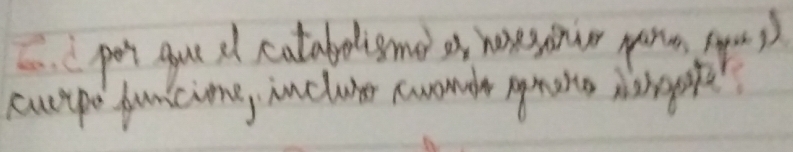 ¿ por que el catabolismo es nesesario para que el
cuerpo funcione, incluso cuando genera desgaste?